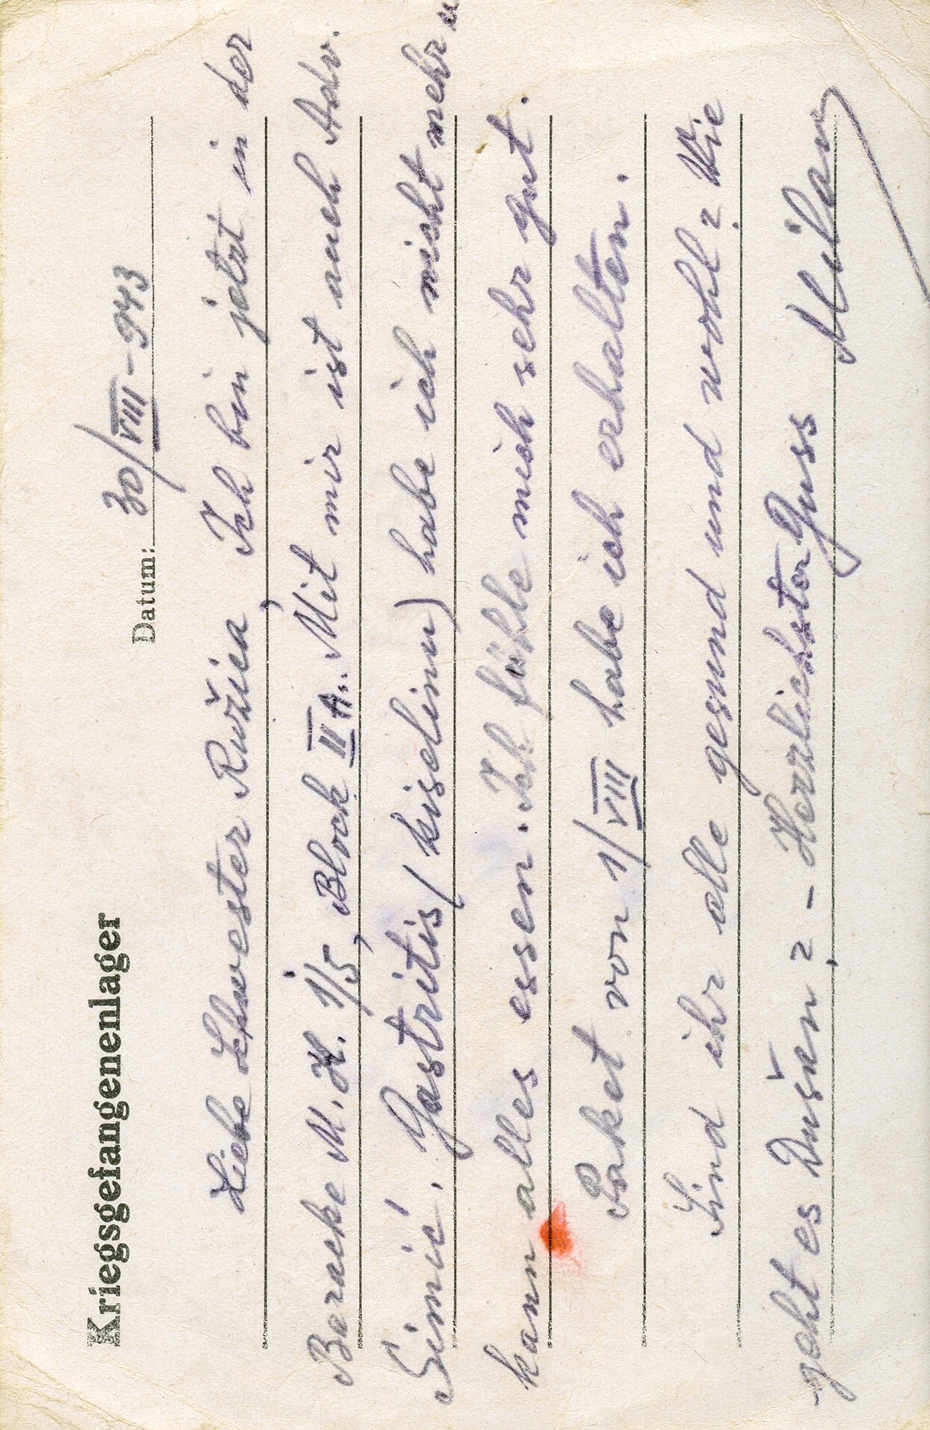 Kriegsgefangenenlager
Datum: 30/VIII-943
Liebe Schwester Ružica, Ich bin jetzt in der
Baracke M.H. 1/5, Block II A.. Mit mir ist auch Adv.
Simić. Gastritis (kiselinu) habe ich nicht mehr u
kann alles essen. Ich fühle mich sehr gut.
Paket von 1/VIII habe ich erhalten.
Sind ihr alle gesund und wohl? Wie
geht es Dušan? - Herzlichster Guss Milan